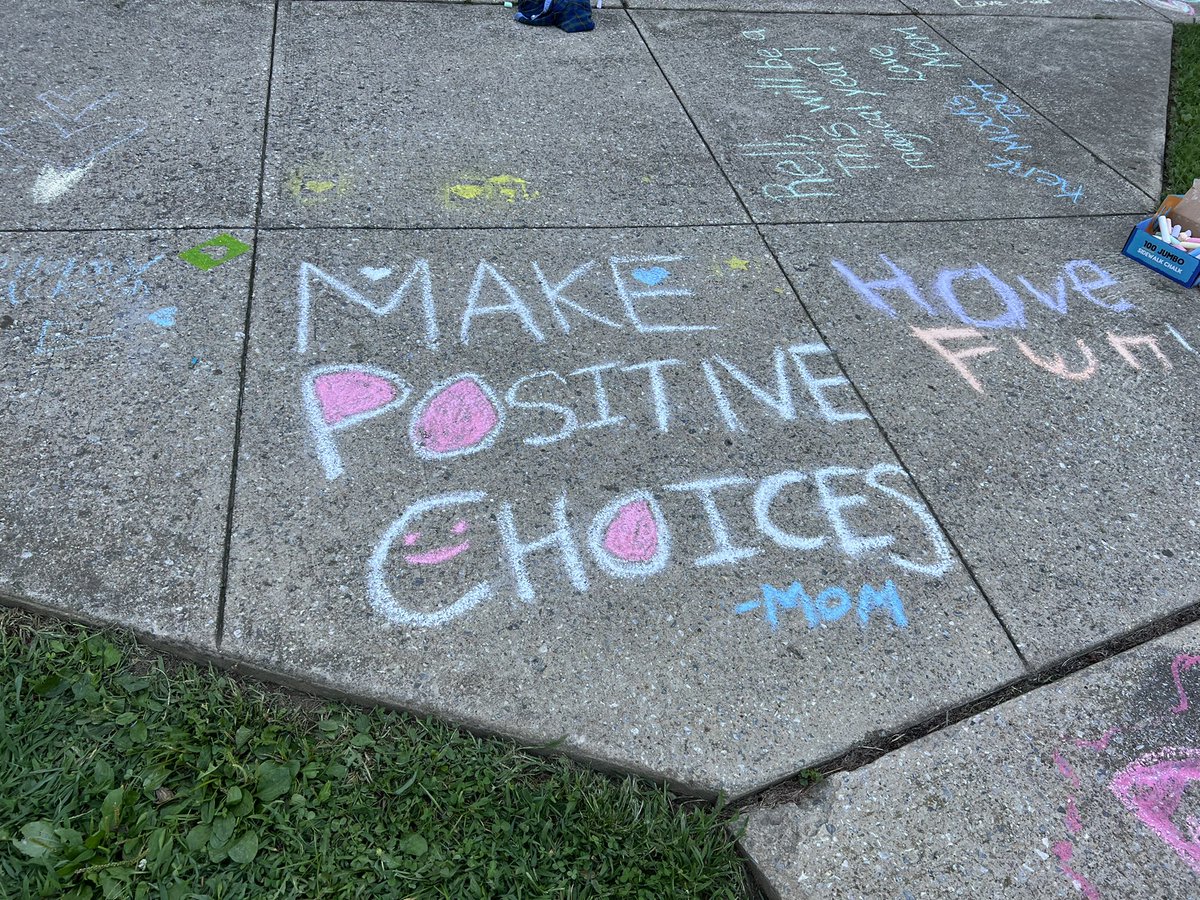 MAKE
POSITIVE
CHOICES
-MOM
Have
Fun!
Rell!
This will be a
magical year!
Love
MOM
100 JUMBO
SIDEWALK CHALK